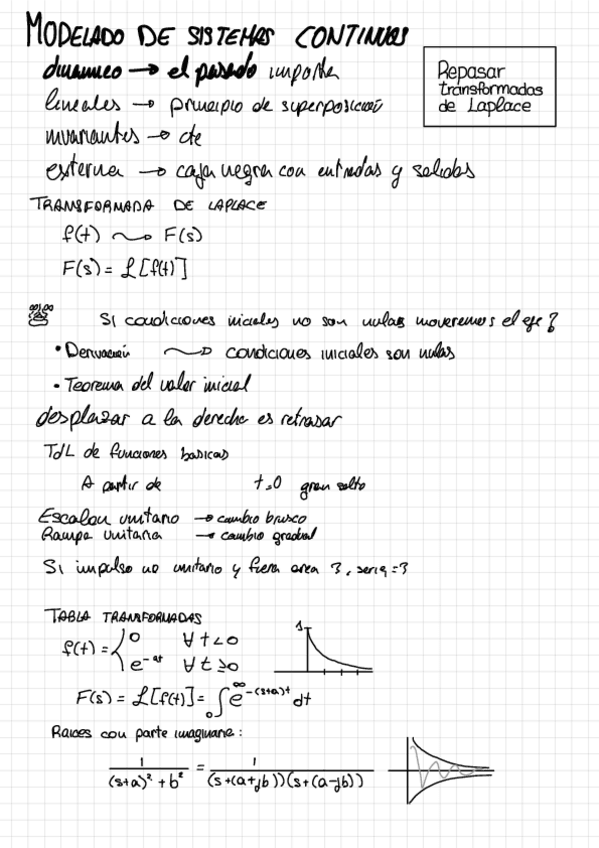 MODELADO DE SISTEMAS CONTINUOS
dinamico → el pasado importa
Repasar
transformadas
de Laplace
lineales → principio de superposición
invariantes → cte
externa → caja negra con entradas y salidas
TRANSFORMADA DE LAPLACE
f(t) ⟿ F(s)
F(s) = ℒ[f(t)]
Si condiciones iniciales no son nulas moveremos el eje?
• Derivación ⟿ condiciones iniciales son nulas
• Teorema del valor inicial
desplazar a la derecha es retrasar
TdL de funciones basicas
A partir de t=0 gran salto
Escalon unitario → cambio brusco
Rampa unitaria → cambio gradual
Si impulso no unitario y fuera area 3, seria =3
TABLA TRANSFORMADAS
f(t) = { 0 ∀ t<0
e^-at ∀ t≥0
1
F(s) = ℒ[f(t)] = ∫₀^∞ e^-(s+a)t dt
Raices con parte imaginaria:
1/((s+a)² + b²) = 1/((s+(a+jb))(s+(a-jb)))